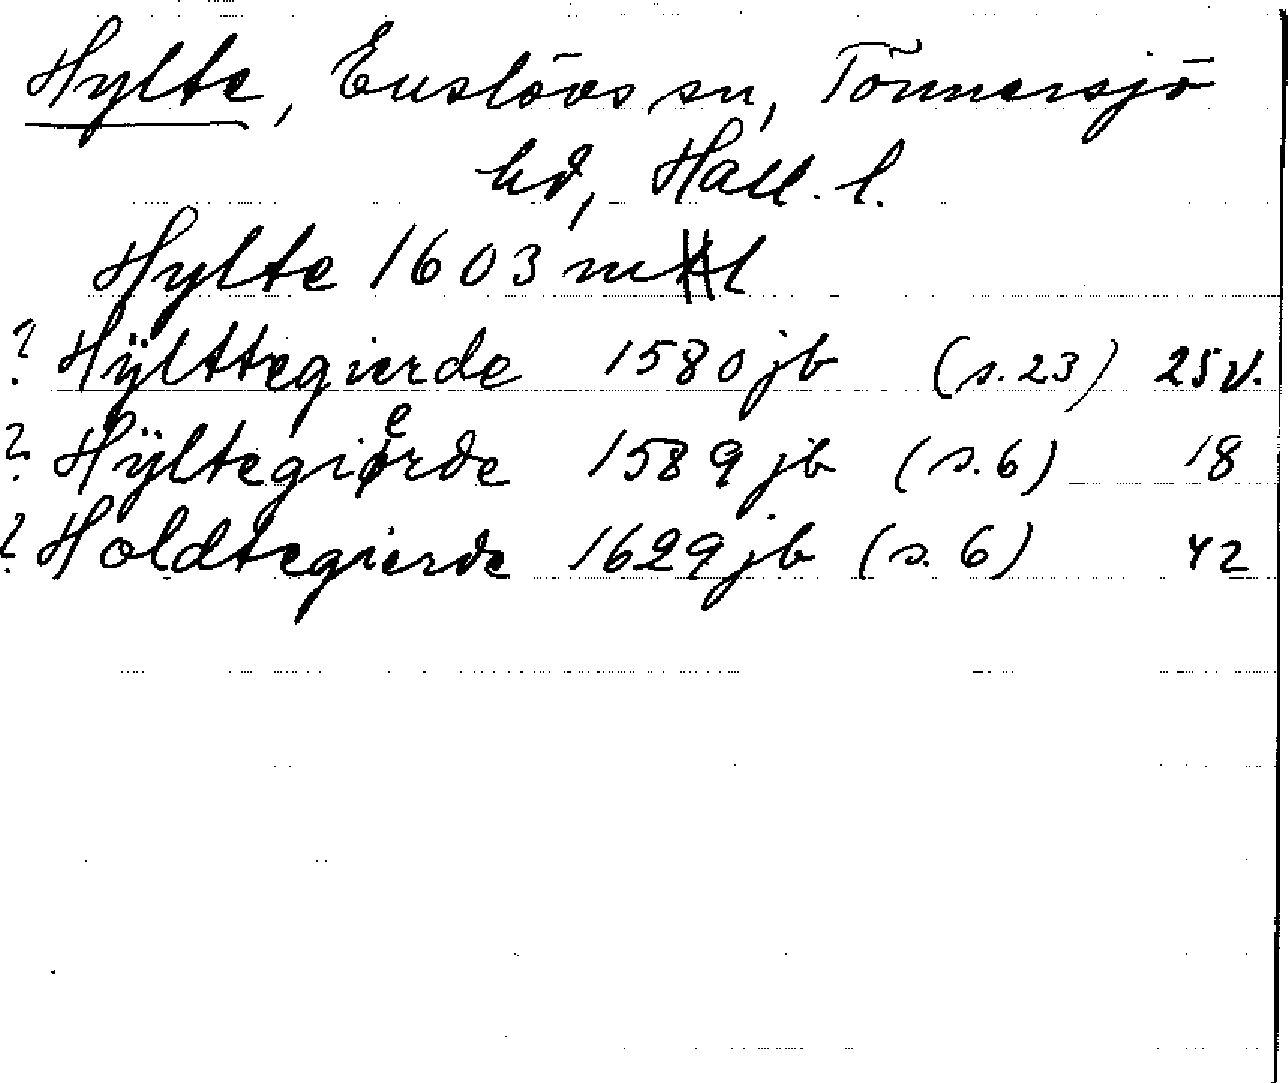 Hylte, Enslövs sn, Tönnersjö
hd, Hall. l.
Hylte 1603 ml
? Hÿlttegierde 1580 jb (s. 23) 25 v.
? Hÿltegierde 1589 jb (s. 6) 18
? Holdtegierde 1629 jb (s. 6) 42